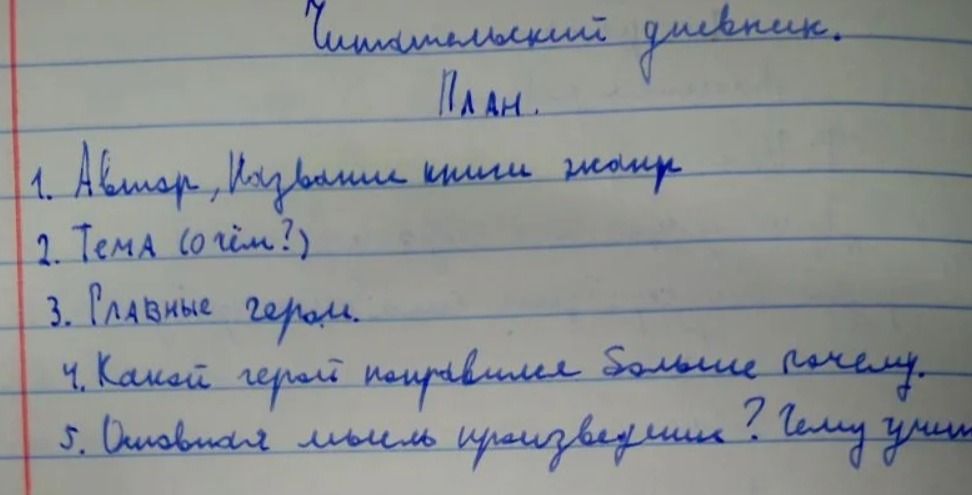 Читательский дневник.
План.
1. Автор, Название книги жанр
2. Тема (о чём?)
3. Главные герои.
4. Какой герой понравился больше почему.
5. Основная мысль произведения? Чему учит